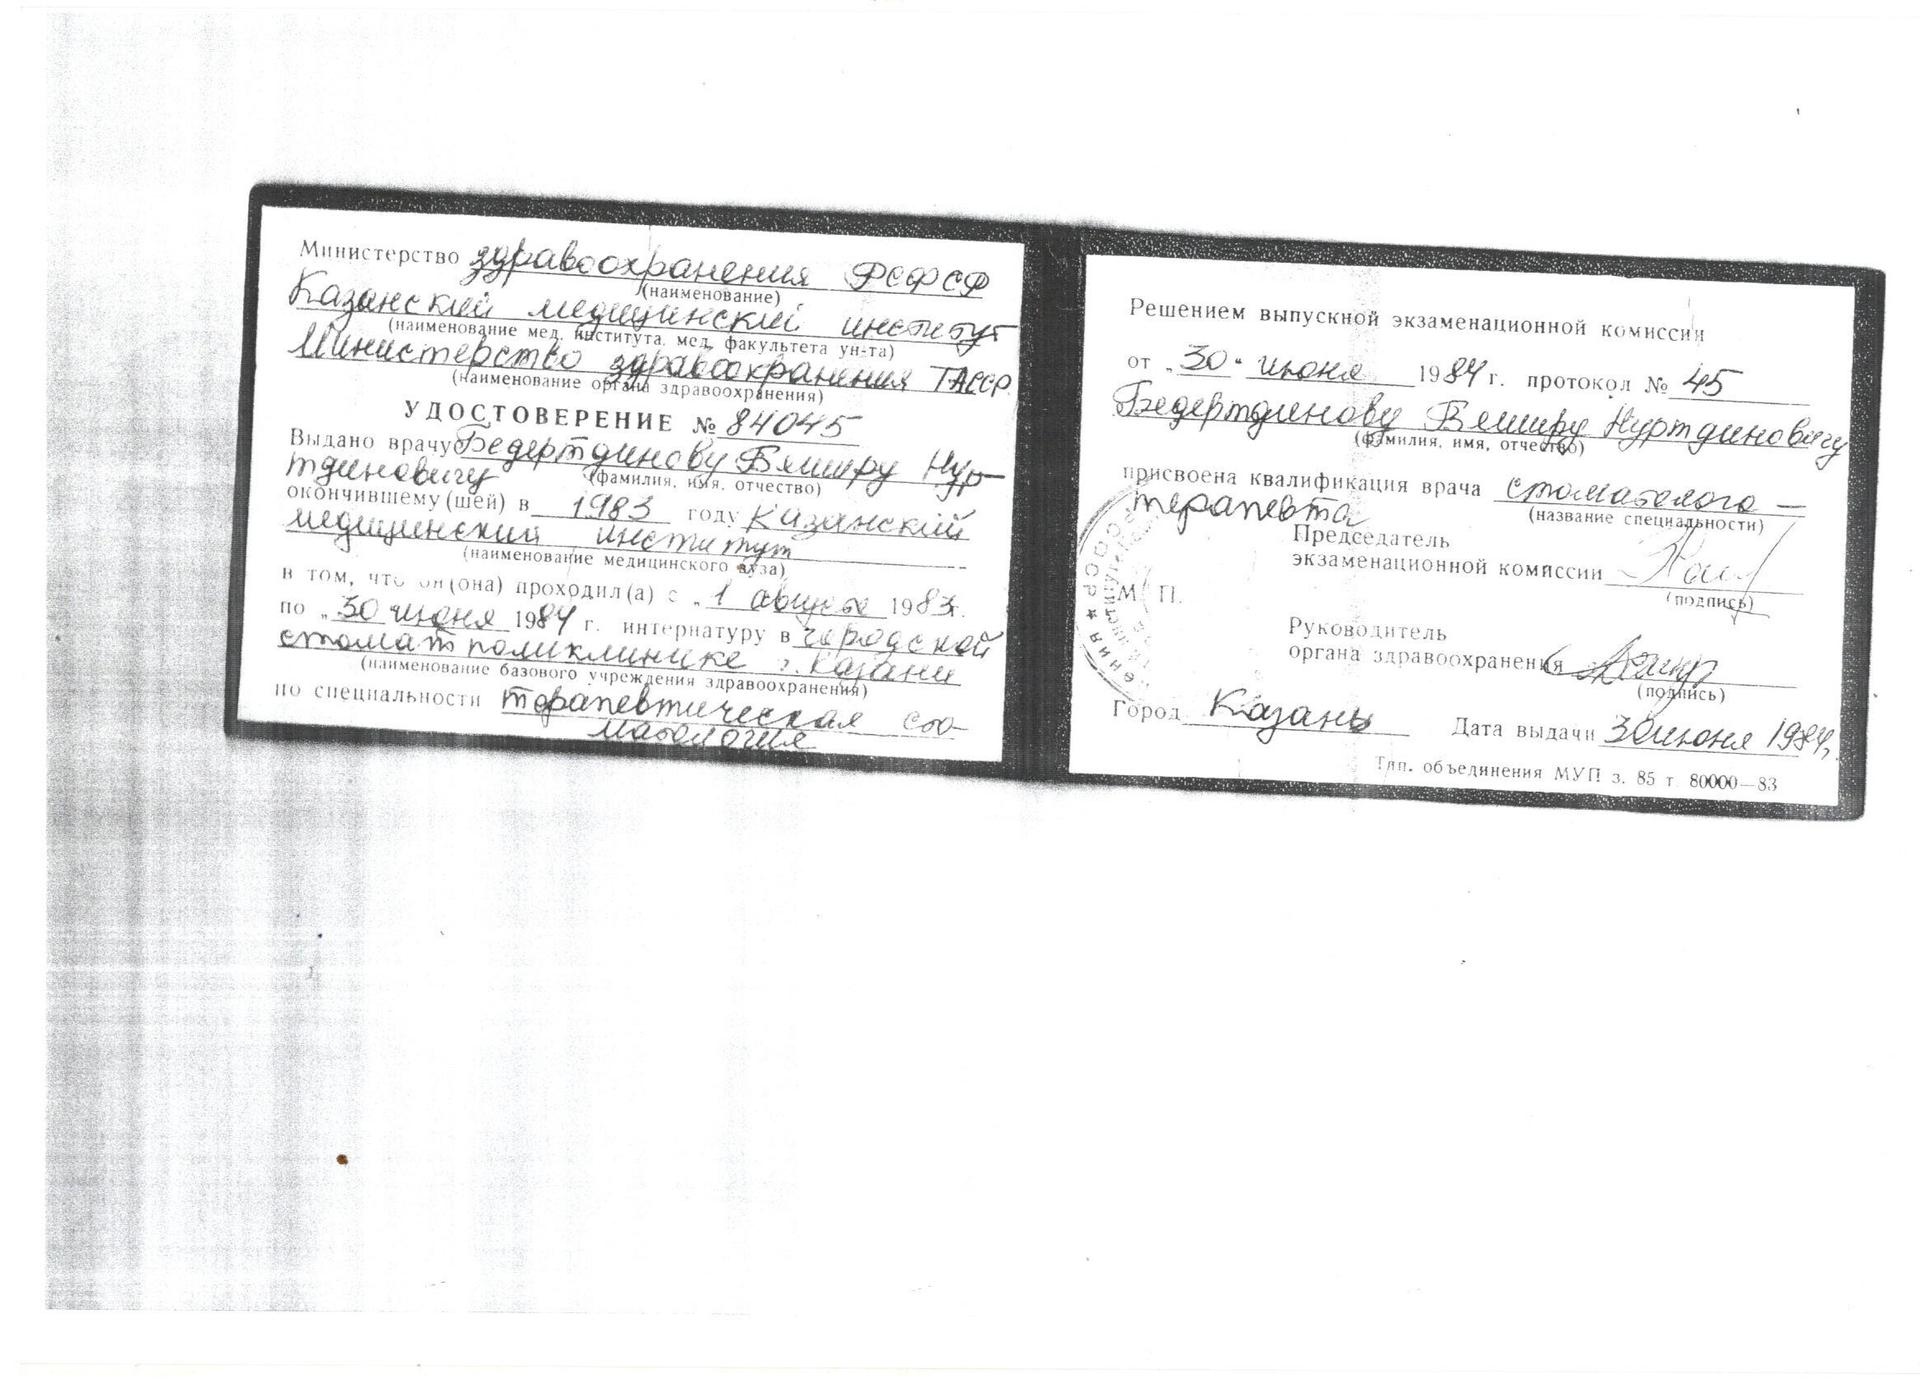 Министерство здравоохранения РСФСР
(наименование)
Казанский медицинский институт
(наименование мед. института, мед. факультета ун-та)
Министерство здравоохранения ТАССР
(наименование органа здравоохранения)
УДОСТОВЕРЕНИЕ № 84045
Выдано врачу Бедертдинову Бяширу Нур-
тдиновичу (фамилия, имя, отчество)
окончившему(шей) в 1983 году Казанский
медицинский институт
(наименование медицинского вуза)
в том, что он(она) проходил(а) с „1 августа 1983г.
по „30 июня 1984 г. интернатуру в городской
стомат поликлинике г. Казани
(наименование базового учреждения здравоохранения)
по специальности терапевтическая сто-
матология
Решением выпускной экзаменационной комиссии
от „30" июня 1984 г. протокол № 45
Бедертдинову Бяширу Нуртдиновичу
(фамилия, имя, отчество)
присвоена квалификация врача стоматолога –
терапевта (название специальности)
Председатель
экзаменационной комиссии
(подпись)
М. П.
Руководитель
органа здравоохранения
(подпись)
Город Казань Дата выдачи 30 июня 1984г.
Тип. объединения МУП з. 85 т. 80000—83